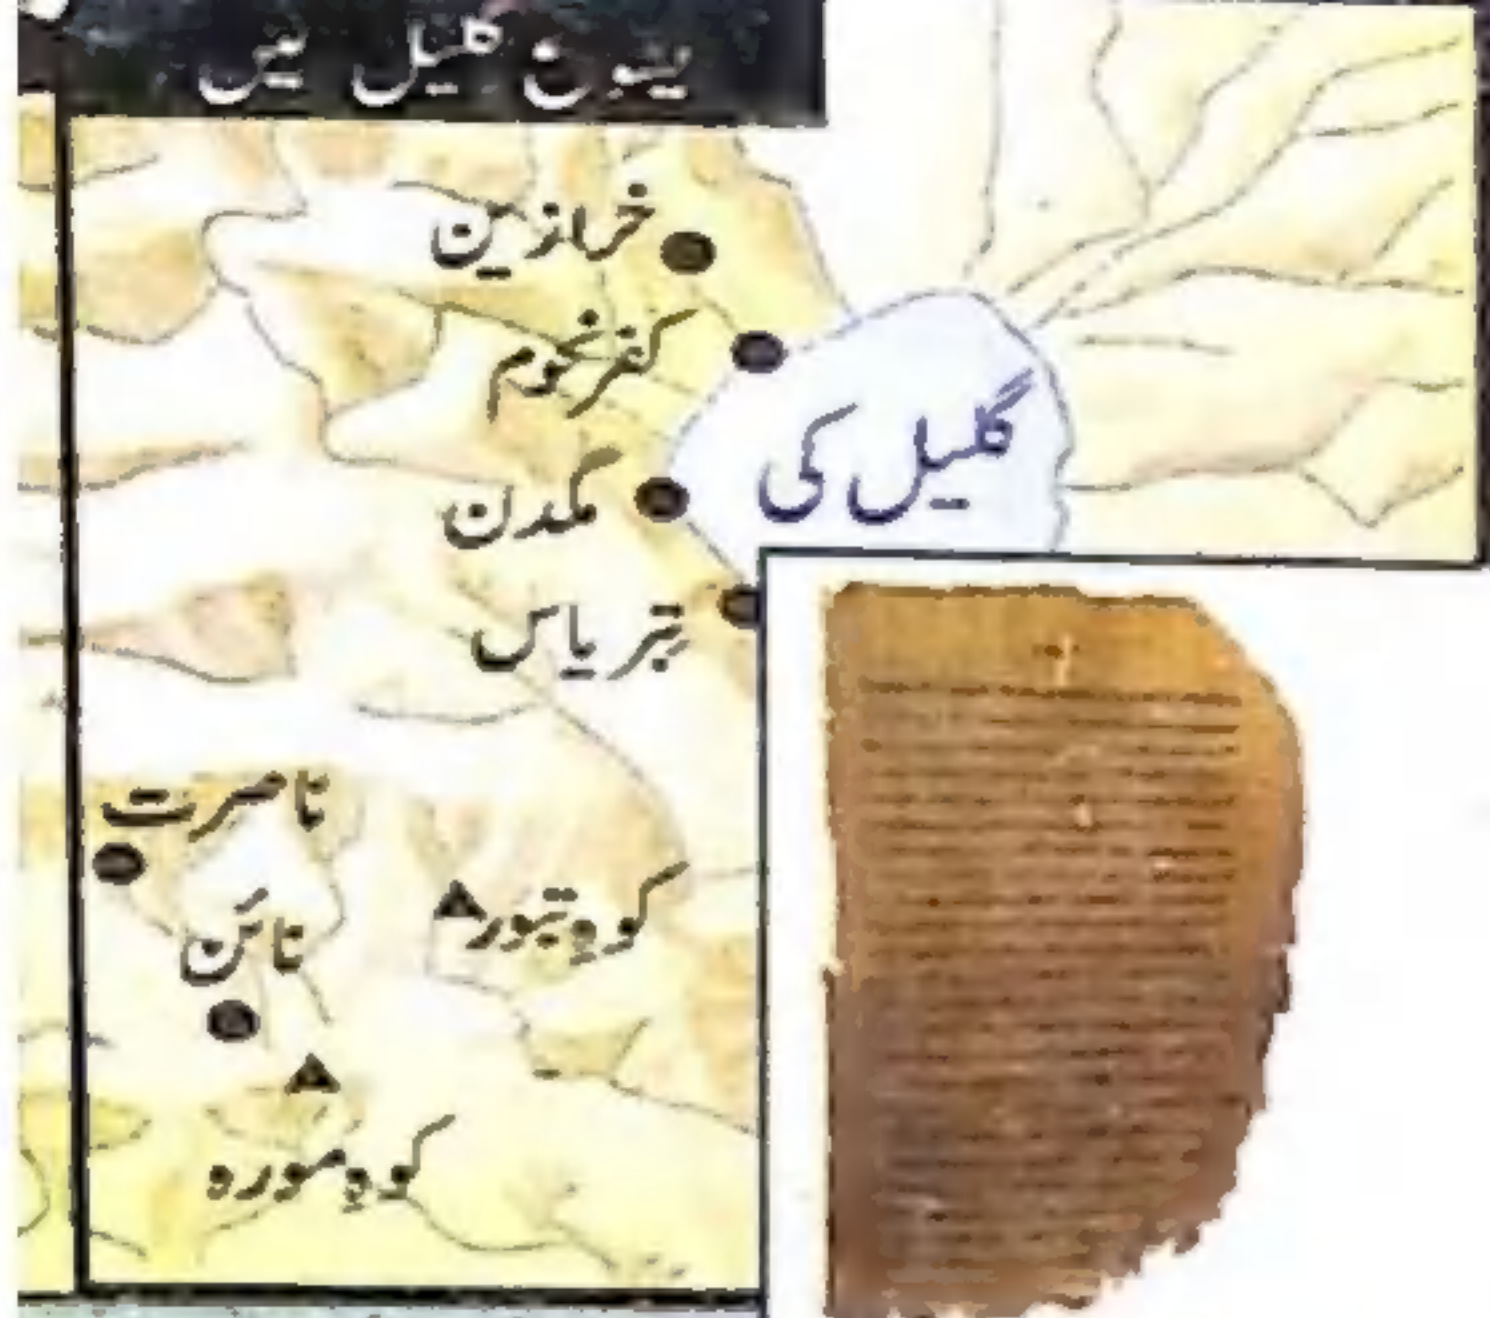 یسوع گلیل میں
خرازین
کفرنحوم
گلیل کی
مگدن
تبریاس
ناصرت
کوہِ تبور
نائن
کوہِ مورہ